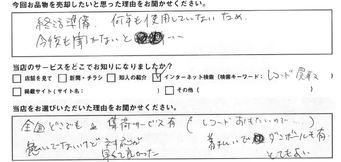 今回お品物を売却したいと思った理由をお聞かせください。
終活準備、何年も使用していないため、
今後も聞かないと
当店のサービスをどこでお知りになりましたか?
□店舗を見て □新聞・チラシ □知人の紹介 ☑インターネット検索（検索キーワード：レコード 買取）
□掲載サイト（サイト名： ） □その他（ ）
当店をお選びいただいた理由をお聞かせください。
全国どこでも 集荷サービス有（レコードおもたいので…）
聴いてないので 対応が 着払いで ダンボールも有
早くて良かった とてもよい